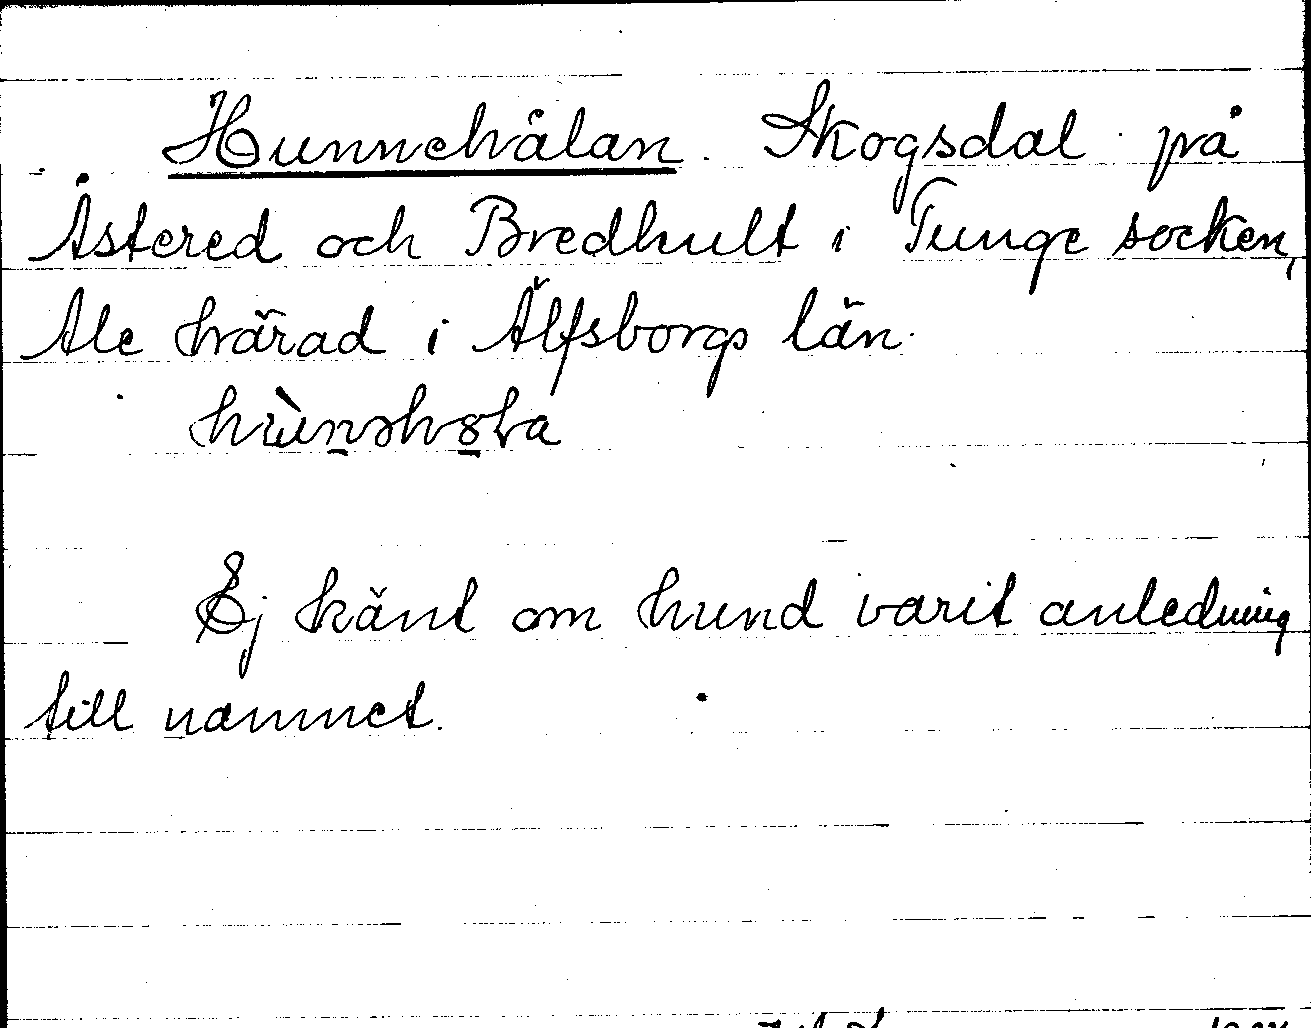 Hunnehålan. Skogsdal på
Åstered och Bredhult i Tunge socken,
Ale härad i Älfsborgs län.
Ej känt om hund varit anledning
till namnet.